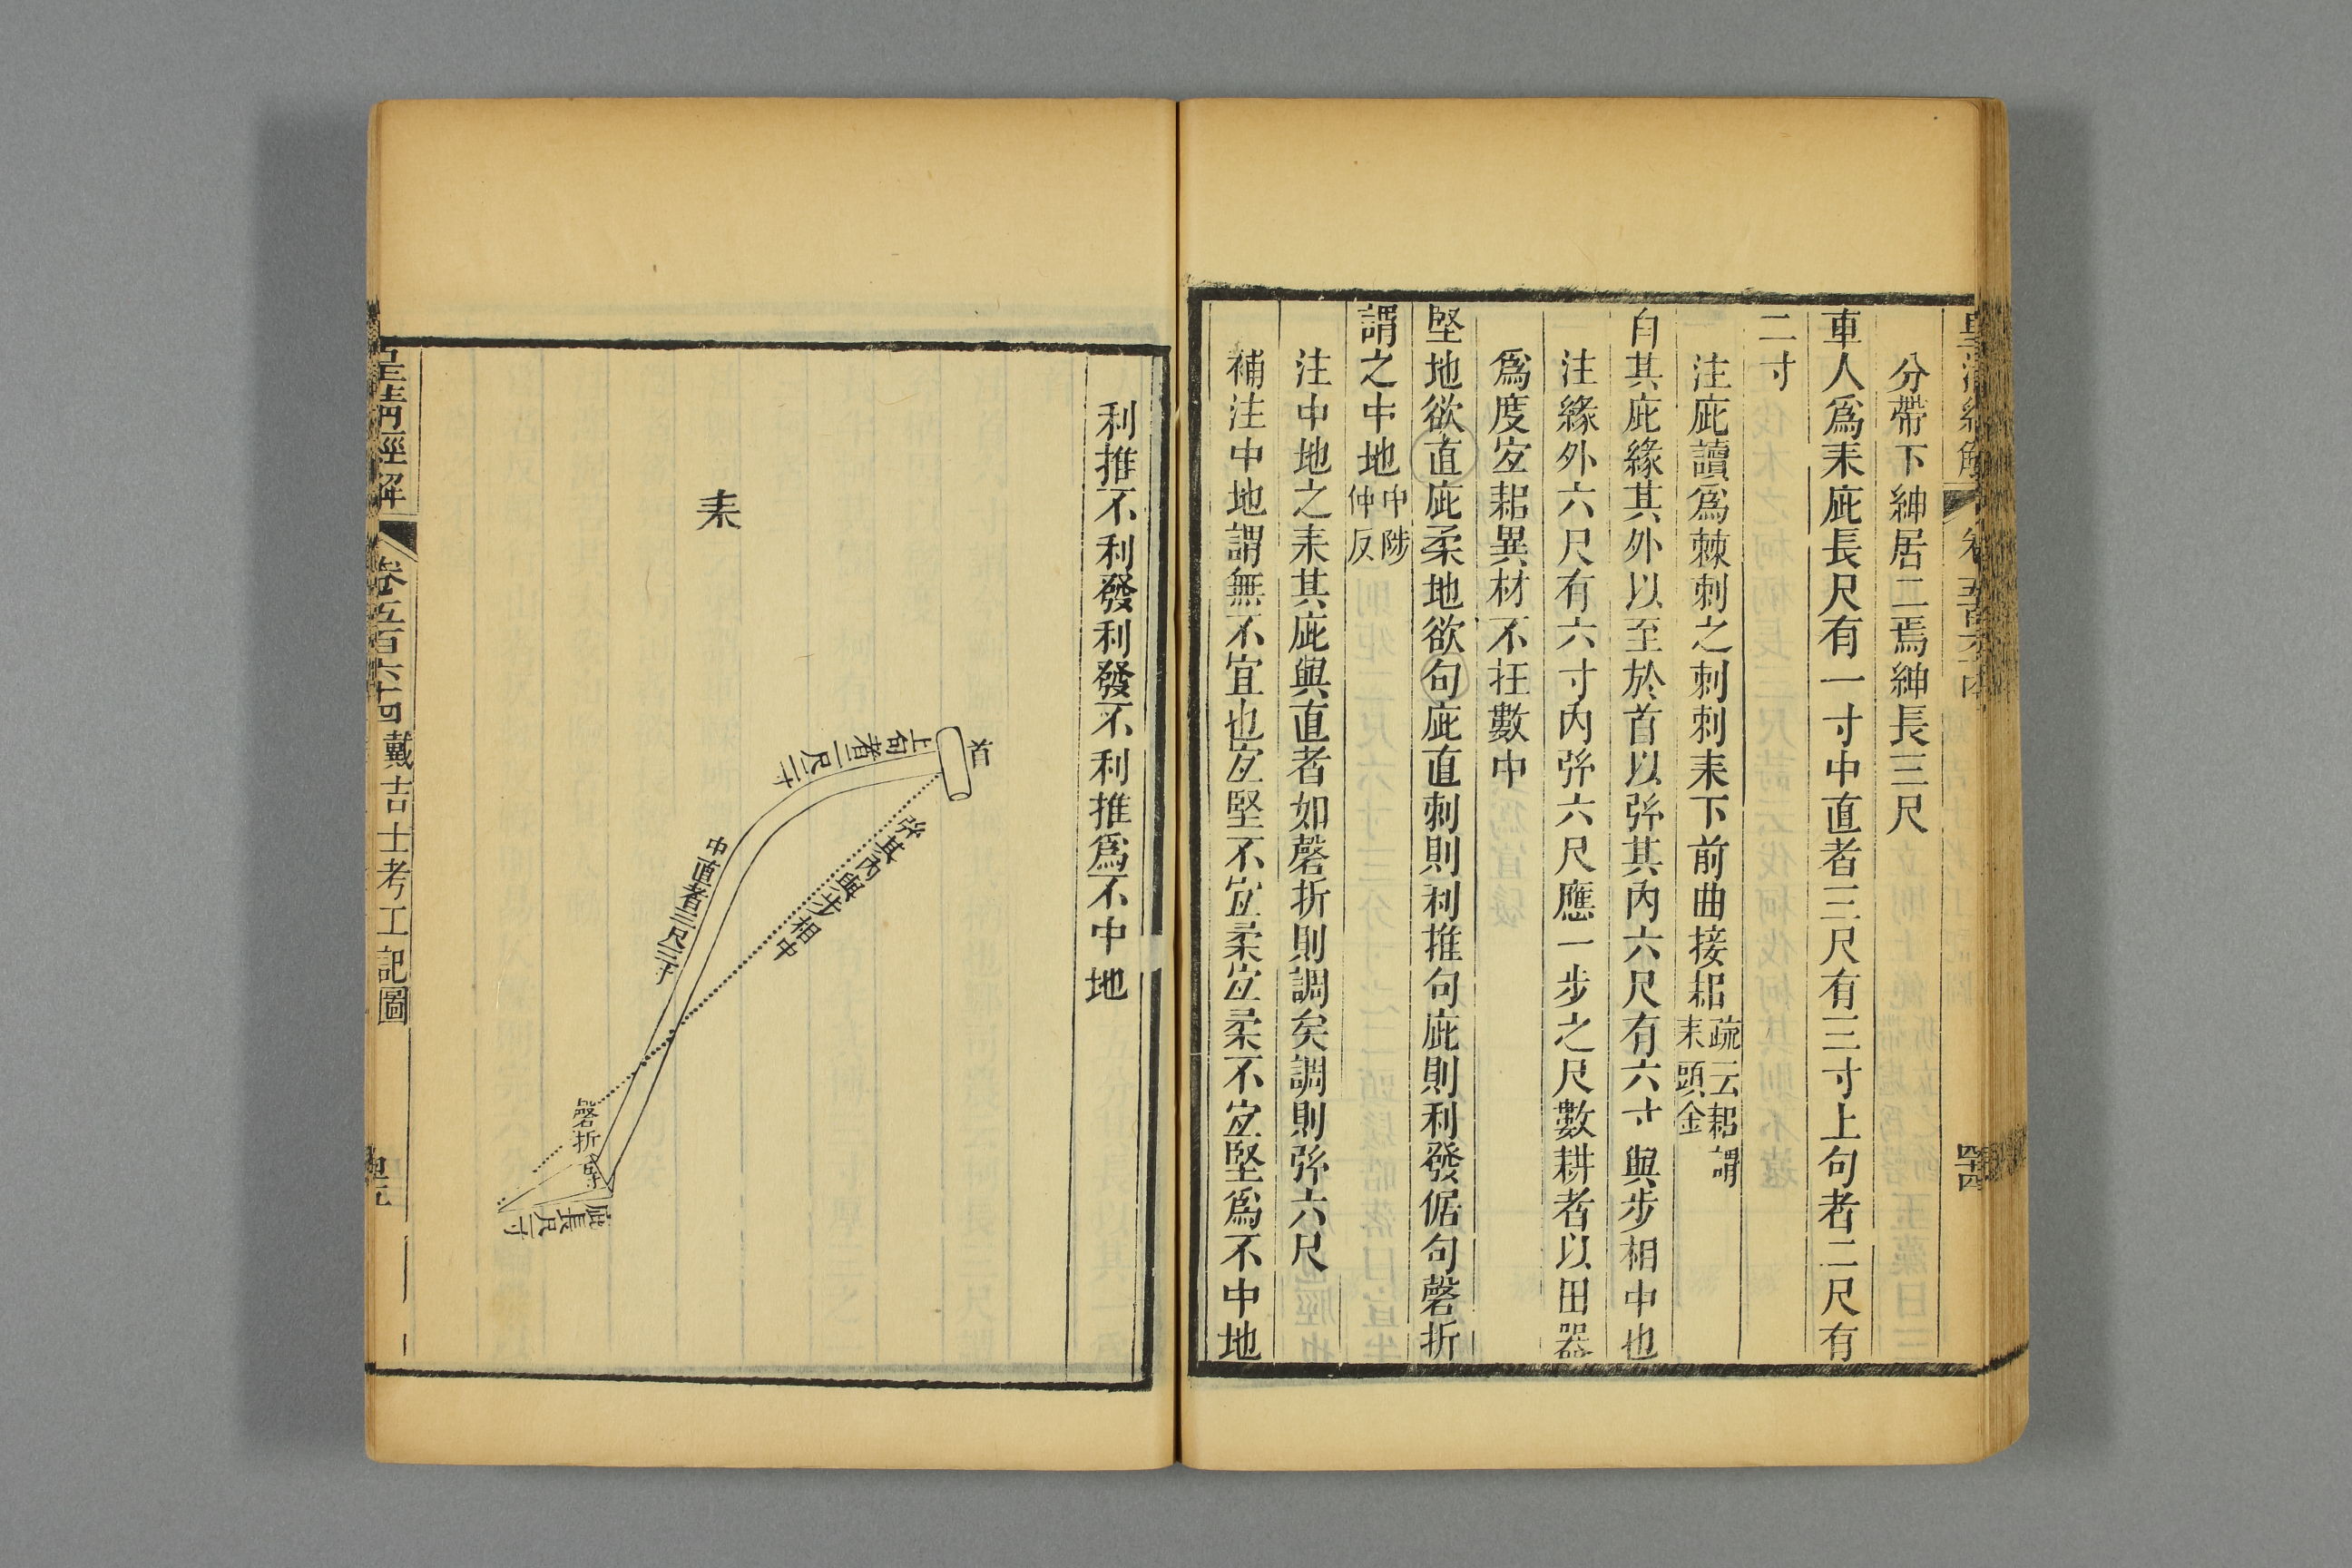 分帶下紳居二焉紳長三尺
車人爲耒庛長尺有一寸中直者三尺有三寸上句者二尺有
二寸
注庛讀爲棘刺之刺刺耒下前曲接耜疏云耜謂耒頭金
自其庛緣其外以至於首以弦其內六尺有六寸與步相中也
注緣外六尺有六寸內弦六尺應一步之尺數耕者以田器
爲度宜耜異材不在數中
堅地欲直庛柔地欲句庛直刺則利推句庛則利發倨句磬折
謂之中地中陟仲反
注中地之耒其庛與直者如磬折則調矣調則弦六尺
補注中地謂無不宜也宜堅不宜柔宜柔不宜堅爲不中地
利推不利發利發不利推爲不中地
耒
首
上句者二尺二寸
弦其內與步相中
中直者三尺三寸
磬折
庛長尺一寸
皇清經解
卷五百六十四
戴吉士考工記圖